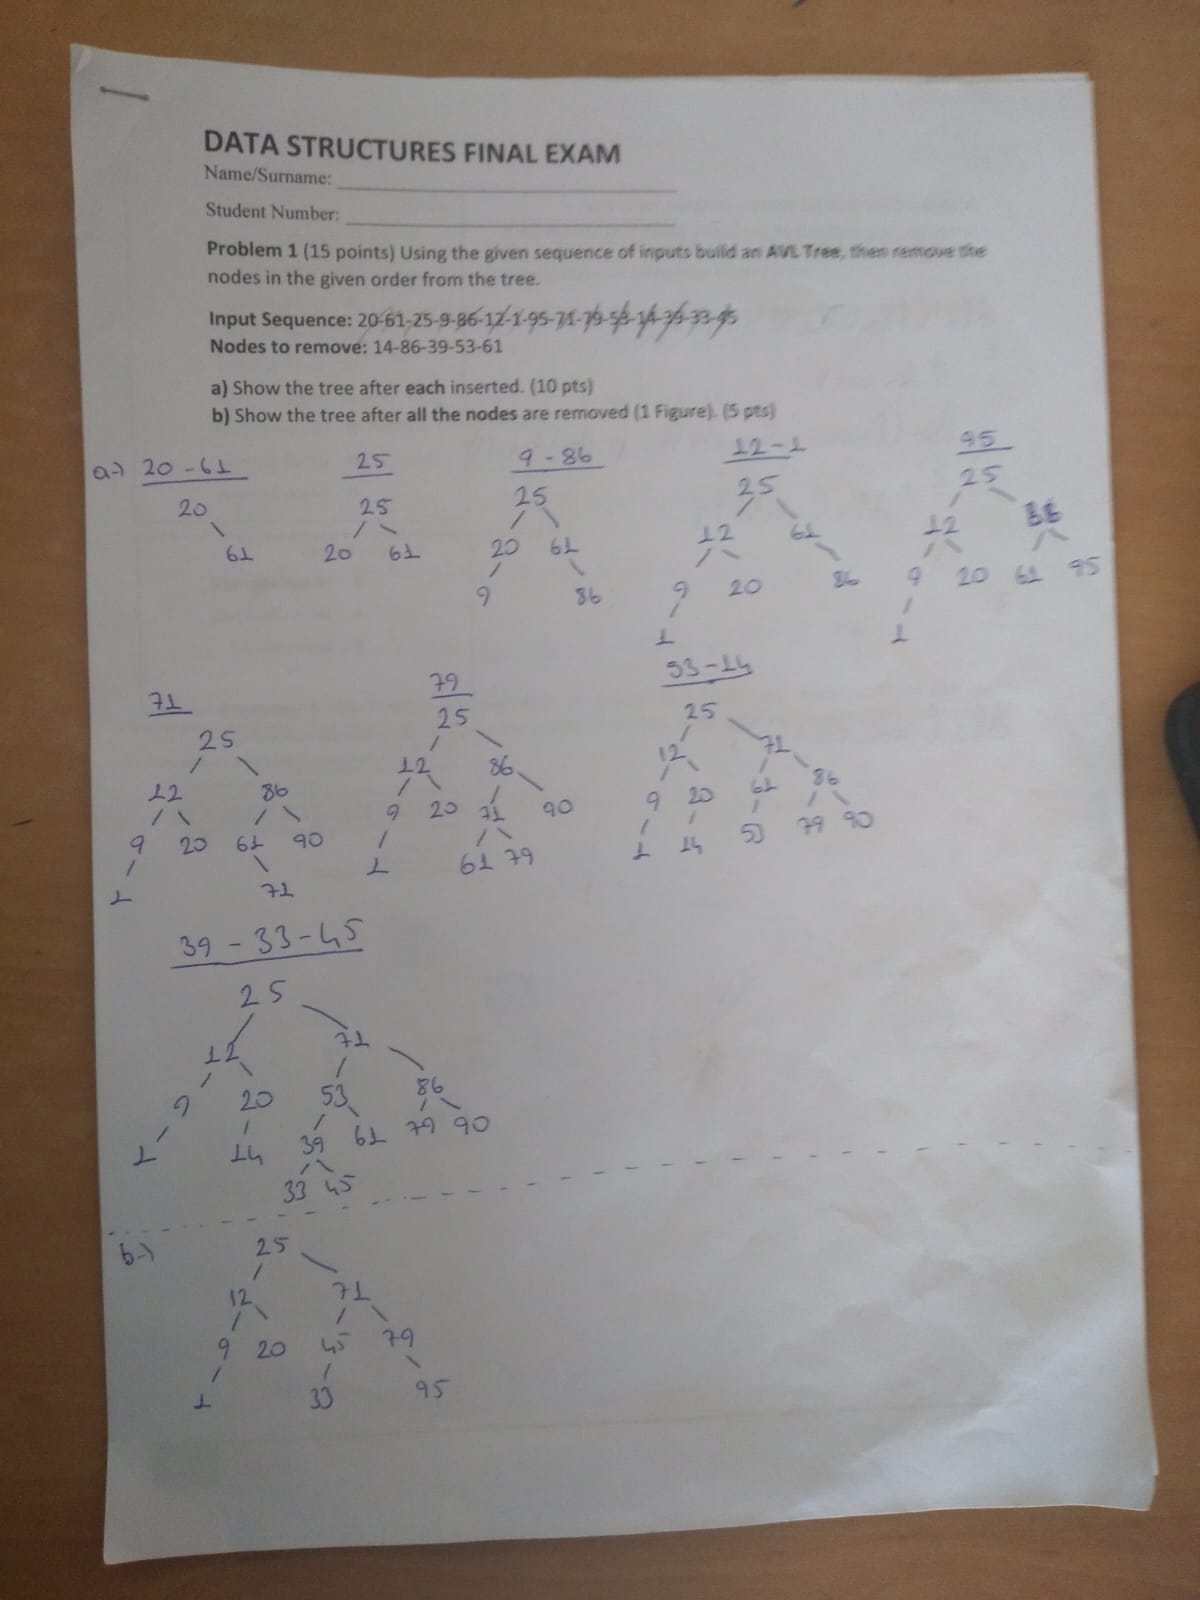 DATA STRUCTURES FINAL EXAM
Name/Surname:
Student Number:
Problem 1 (15 points) Using the given sequence of inputs build an AVL Tree, then remove the
nodes in the given order from the tree.
Input Sequence: 20-61-25-9-86-12-1-95-71-79-53-14-39-33-45
Nodes to remove: 14-86-39-53-61
a) Show the tree after each inserted. (10 pts)
b) Show the tree after all the nodes are removed (1 Figure). (5 pts)
a-) 20-61
20
61
25
25
20 61
9-86
25
20 61
9 86
12-1
25
12 61
9 20 86
1
95
25
12 86
9 20 61 95
1
71
25
12 86
9 20 61 90
1 71
79
25
12 86
9 20 71 90
1 61 79
53-14
25
12 71
9 20 61 86
1 14 53 79 90
39-33-45
25
12 71
9 20 53 86
1 14 39 61 79 90
33 45
b-)
25
12 71
9 20 45 79
1 33 95